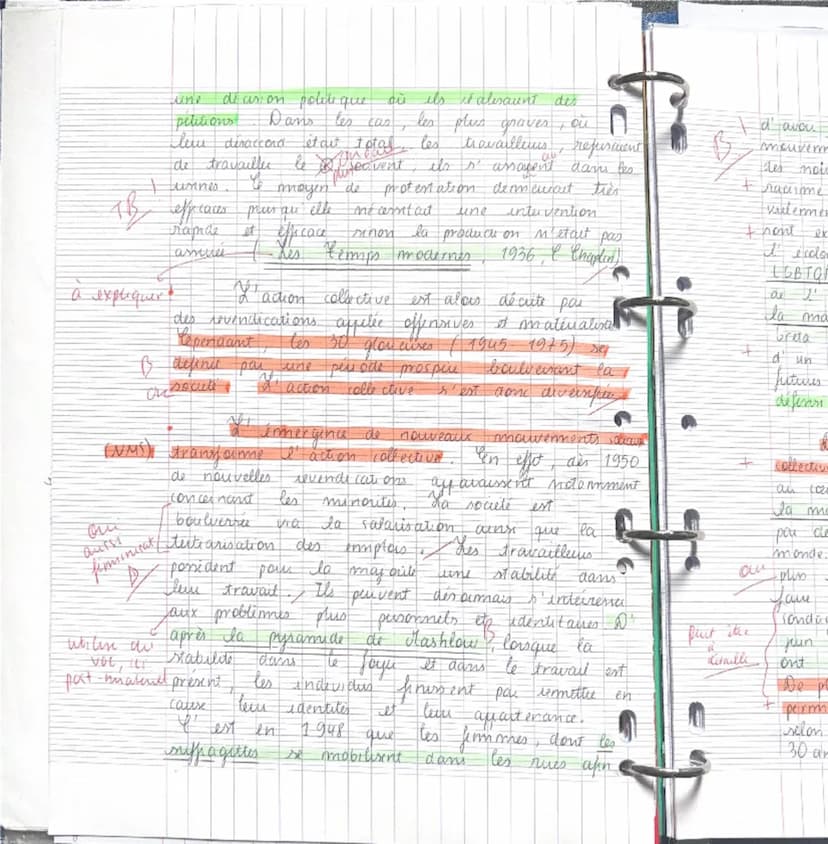 une décision politique où ils réalisaient des
pétitions. Dans les cas, les plus graves, où
leur désaccord était total les travailleurs, refusaient
de travailler le plus souvent, ils s' arrayent dans les
usines. Ce moyen de protestation demeurait très
TB
efficaces puisqu'elle nécessitait une intervention
rapide et efficace sinon la production n'était pas
assurée (Les Temps modernes, 1936, C Chaplin)
à expliquer
L'action collective est alors décrite par
des revendications appelée offensives et matérialise
Cependant, les 30 glorieuses (1945 1975) se
B
définit par une période prospère boulversant la
société. L'action collective s'est donc diversifiée
L'émergence de nouveaux mouvements sociaux
(NMS) transforme l'action collective. En effet, dès 1950
de nouvelles revendications apparaissent notamment
concernant les minorités. La société est
boulversée via la salarisation ainsi que la
oui
aussi
féminisat°
tertiarisation des emplois. Les travailleurs
possèdent pour la majorité une stabilité dans
leur travail. Ils peuvent désormais s'intéresser
aux problèmes plus personnels et identitaires D'
après la pyramide de Mashlow, lorsque la
utiliser du
voc, ici
post-matériel
stabilité dans le foyer et dans le travail est
présent, les individus finissent par remettre en
cause leur identités et leur appartenance.
C' est en 1948 que les femmes, dont les
suffragettes se mobilisent dans les rues afin
B
d'avoi
mouvem
des noi
+ racisme
violemme
+ nont ex
l' écolo
LGBTQI
de l'
la ma
Greta
+ d' un
futures
défens
+ collective
au cœu
la mu
par de
monde.
ou plus
faire
peut être
à
détaillé
ont
De pl
+ perm
selon
30 an